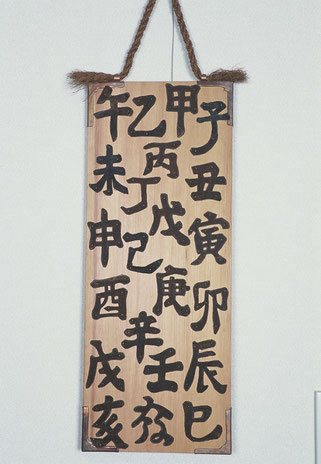 子丑寅卯辰巳
甲乙丙丁戊己庚辛壬癸
午未申酉戌亥